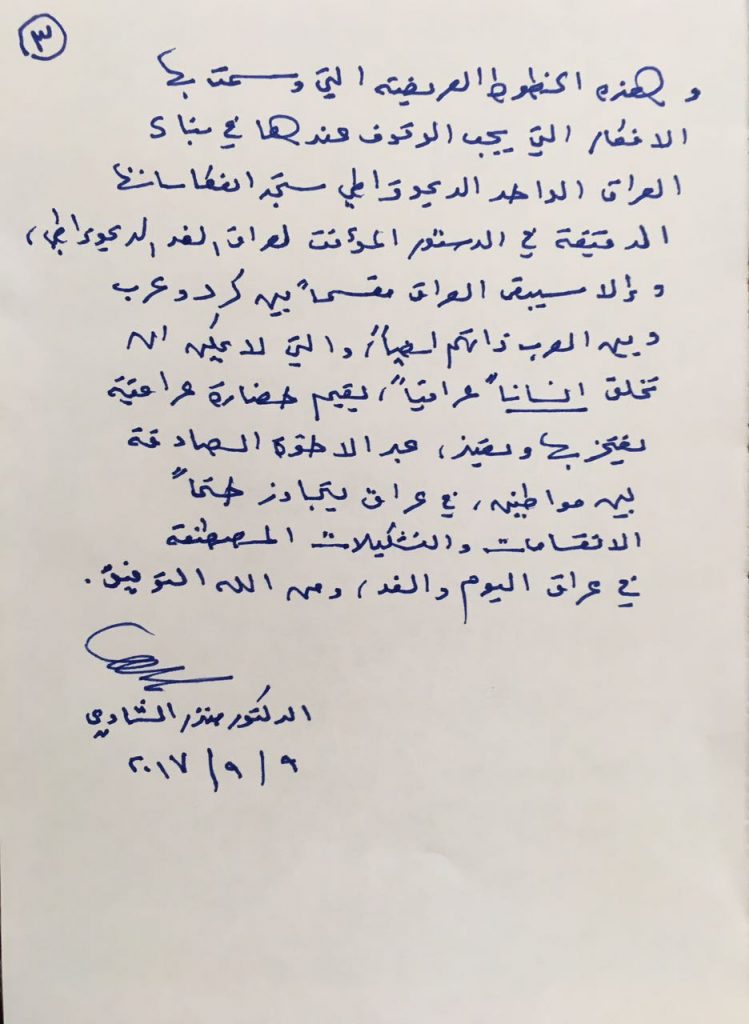 ٣
وهذه الخطوط العريضة التي وسمت بها
الافكار التي يجب الوقوف عندها في بناء
العراق الواحد الديموقراطي ستجد انعكاساتها
الدقيقة في الدستور المؤقت لعراق الغد الديموقراطي،
وإلا سيبقى العراق مقسماً بين كرد وعرب
وبين العرب ذاتهم ايضاً، والتي لا يمكن ان
تخلق انساناً عراقياً، يقيم حضارة عراقية
يفتخر بها ويعتز، عبر الاخوة الصادقة
بين مواطنين، في عراق يتجاوز حتماً
الانقسامات والتشكيلات المصطنعة
في عراق اليوم والغد، ومن الله التوفيق.
الدكتور منذر الشاوي
٩ / ٩ / ٢٠١٧